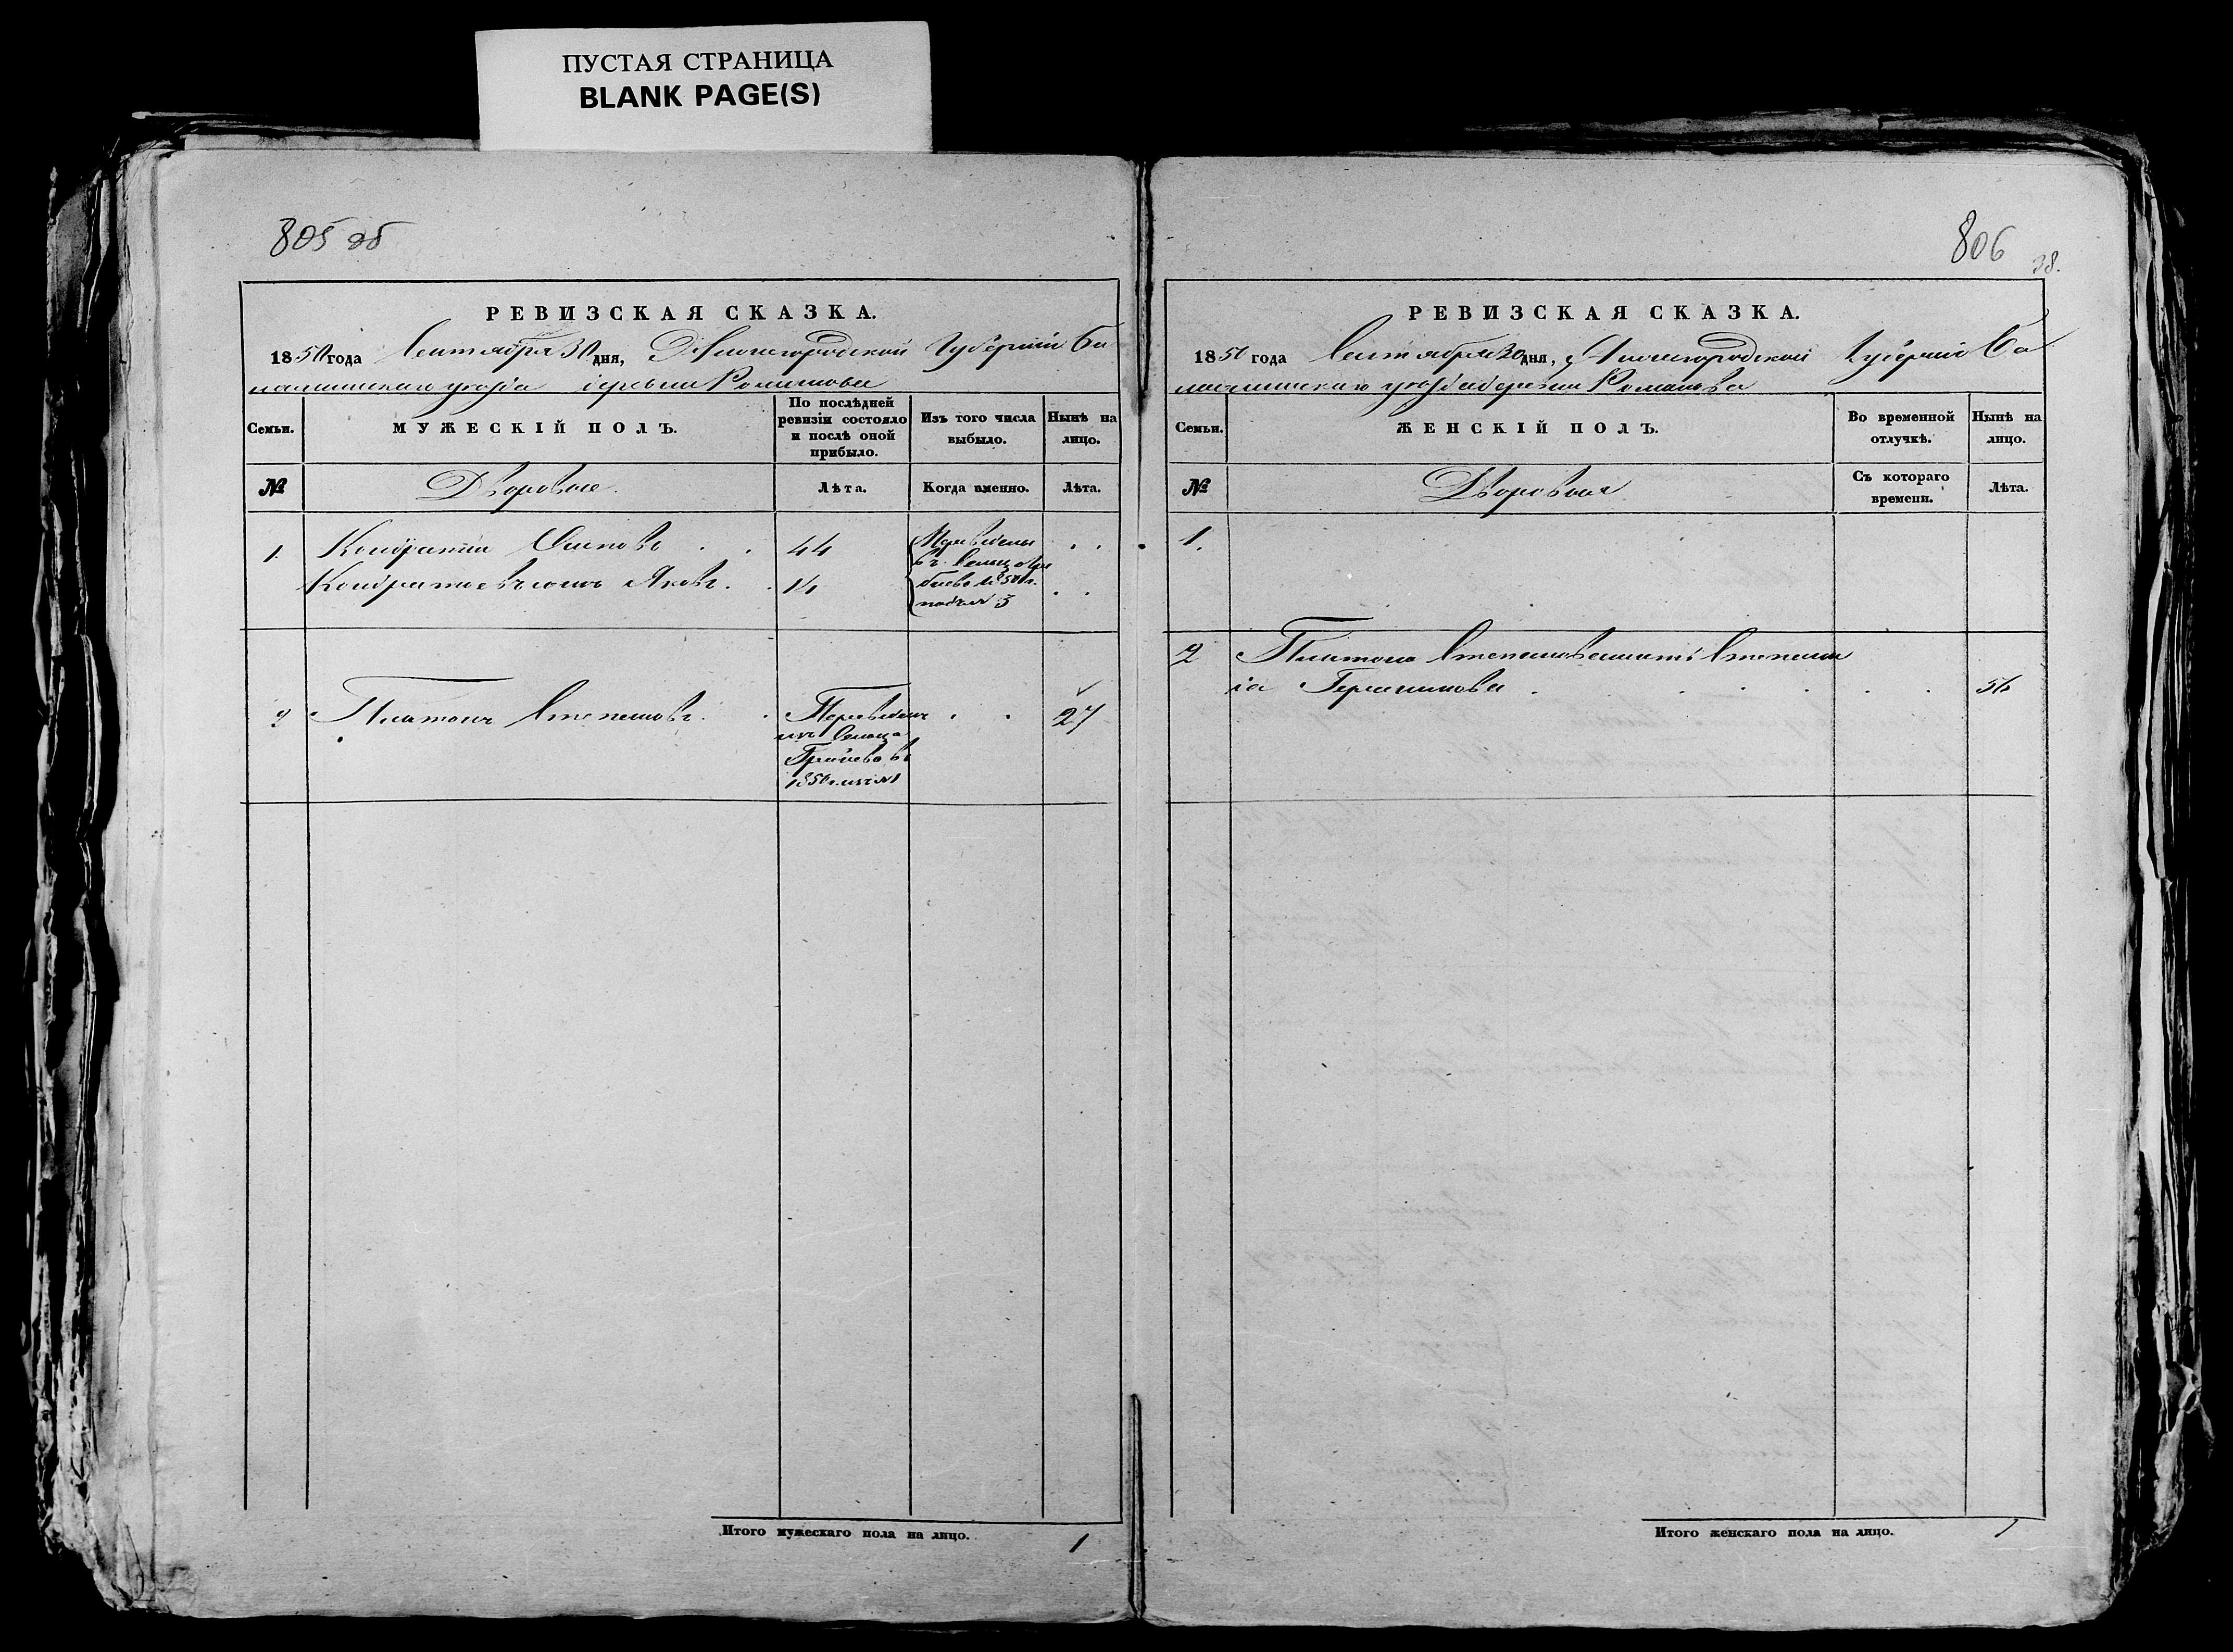 ПУСТАЯ СТРАНИЦА
BLANK PAGE(S)
805 об
РЕВИЗСКАЯ СКАЗКА.
1850 года Сентября 30 дня, Нижегородской Губерніи Ба
лахнинскаго уѣзда деревни Романова
Семьи.
МУЖЕСКІЙ ПОЛЪ.
По послѣдней ревизіи состояло и послѣ оной прибыло.
Изъ того числа выбыло.
Нынѣ на лицо.
№
Дворовые.
Лѣта.
Когда именно.
Лѣта.
1. Кондратій Осиповъ . . 44 Переведены
въ Сельцо
Кондратіевъ сынъ Яковъ. . 14 1850 г.
подъ № 3
2 Платонъ Степановъ. . Переведенъ . . 27
изъ Сельца
въ
1850 г. изъ № 1
Итого мужескаго пола на лицо. 1
806
38.
РЕВИЗСКАЯ СКАЗКА.
1850 года Сентября 30 дня, Нижегородской Губерніи Ба
лахнинскаго уѣзда деревни Романова
Семьи.
ЖЕНСКІЙ ПОЛЪ.
Во временной отлучкѣ.
Нынѣ на лицо.
№
Дворовыя
Съ котораго времени.
Лѣта.
1.
2 Платона Степанова мать Степани
да Герасимова . . . . . . 56
Итого женскаго пола на лицо. 1